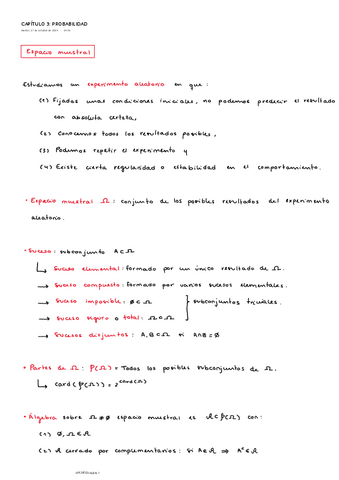 CAPÍTULO 3: PROBABILIDAD
Espacio muestral
Estudiamos un experimento aleatorio en que :
(1) Fijadas unas condiciones iniciales, no podemos predecir el resultado
con absoluta certeza,
(2) Conocemos todos los resultados posibles,
(3) Podemos repetir el experimento y
(4) Existe cierta regularidad o estabilidad en el comportamiento.
• Espacio muestral Ω : conjunto de los posibles resultados del experimento
aleatorio.
• Suceso: subconjunto A⊂Ω
↳ Suceso elemental: formado por un único resultado de Ω.
→ Suceso compuesto: formado por varios sucesos elementales.
→ Suceso imposible: ∅⊂Ω
→ Suceso seguro o total: Ω⊂Ω
} subconjuntos triviales.
→ Sucesos disjuntos : A,B⊂Ω si A∩B=∅
• Partes de Ω : P(Ω) = Todos los posibles subconjuntos de Ω.
↳ card(P(Ω)) = 2^card(Ω)
• Álgebra sobre Ω≠∅ espacio muestral es A⊂P(Ω) con:
(1) ∅, Ω∈A
(2) A cerrado por complementarios: Si A∈A ⇒ Aᶜ∈A